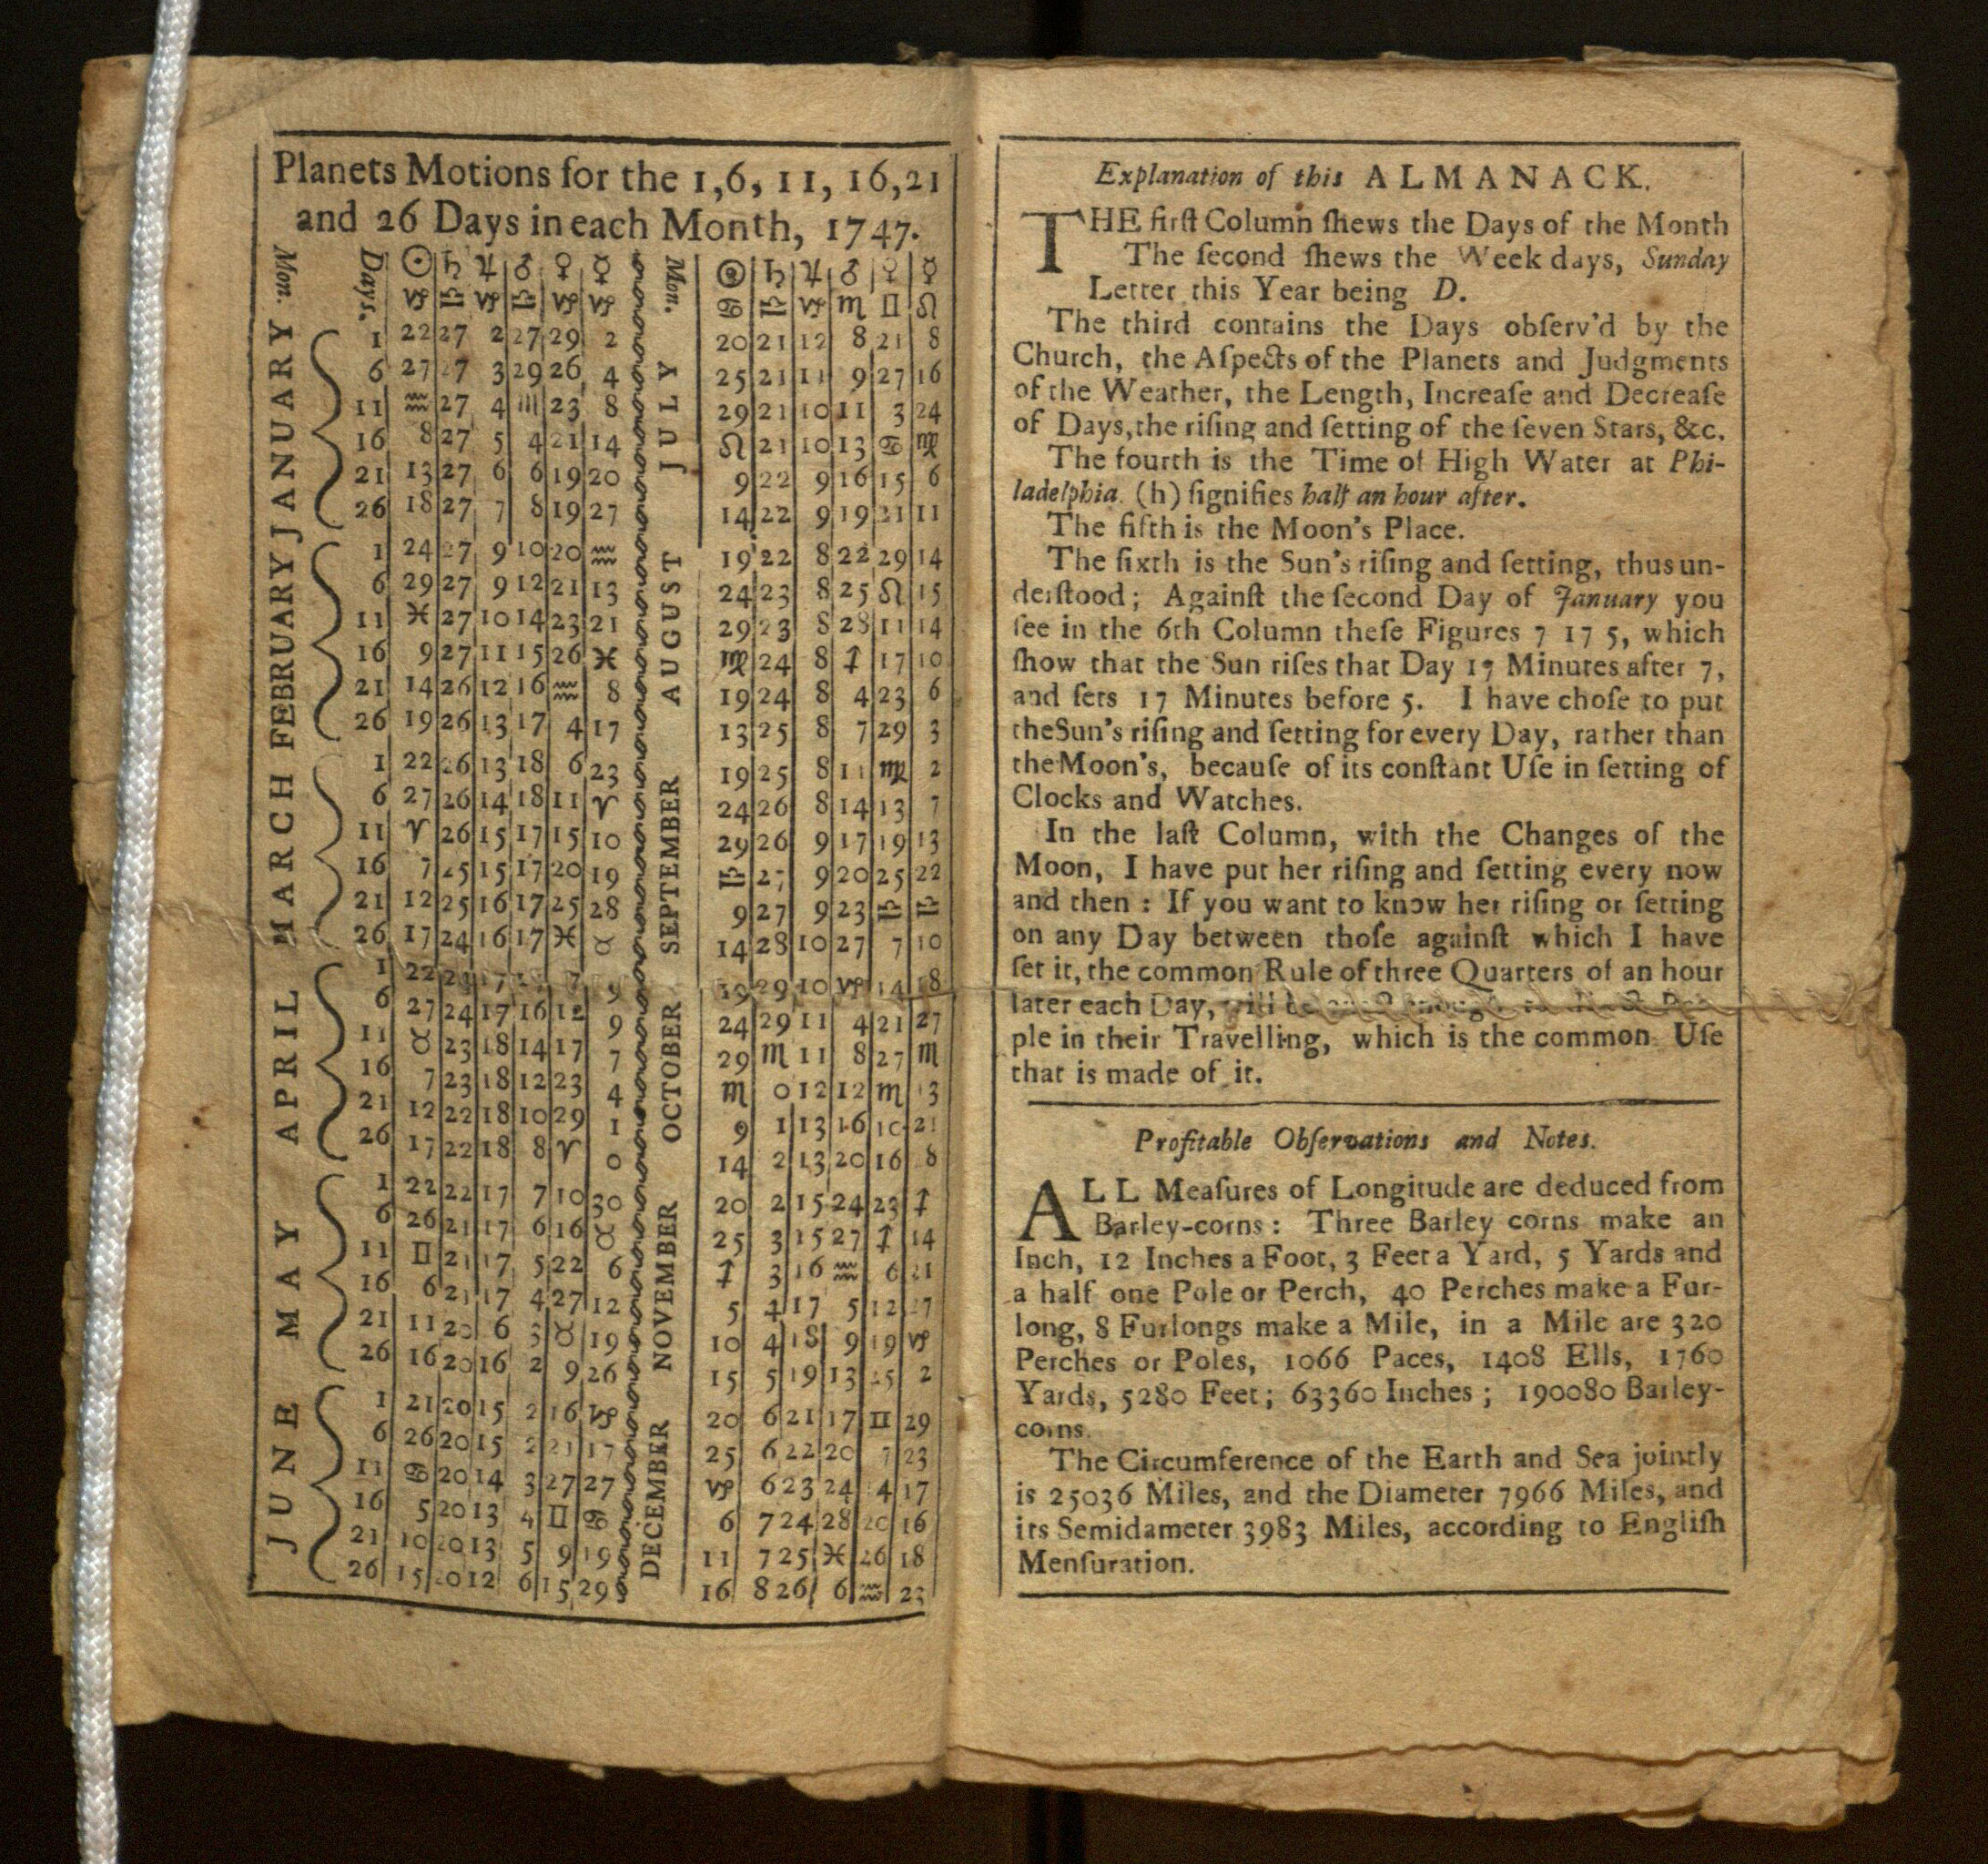 Planets Motions for the 1,6, 11, 16,21
and 26 Days in each Month, 1747.
Mon. Days. ☉ ♄ ♃ ♂ ♀ ☿ Mon. ☉ ♄ ♃ ♂ ♀ ☿
♑ ♎ ♑ ♎ ♑ ♑ ♋ ♎ ♑ ♏ ♊ ♌
JANUARY JULY
1 22 27 2 27 29 2 20 21 12 8 21 8
6 27 27 3 29 26 4 25 21 11 9 27 16
11 ♒ 27 4 ♏ 23 8 29 21 10 11 3 24
16 8 27 5 4 21 14 ♌ 21 10 13 ♋ ♍
21 13 27 6 6 19 20 9 22 9 16 15 6
26 18 27 7 8 19 27 14 22 9 19 21 11
FEBRUARY AUGUST
1 24 27 9 10 20 ♒ 19 22 8 22 29 14
6 29 27 9 12 21 13 24 23 8 25 ♌ 15
11 ♓ 27 10 14 23 21 29 23 8 28 11 14
16 9 27 11 15 26 ♓ ♍ 24 8 ♐ 17 10
21 14 26 12 16 ♒ 8 19 24 8 4 23 6
26 19 26 13 17 4 17 13 25 8 7 29 3
MARCH SEPTEMBER
1 22 26 13 18 6 23 19 25 8 11 ♍ 2
6 27 26 14 18 11 ♈ 24 26 8 14 13 7
11 ♈ 26 15 17 15 10 29 26 9 17 19 13
16 7 25 15 17 20 19 ♎ 27 9 20 25 22
21 12 25 16 17 25 28 9 27 9 23 ♎ ♎
26 17 24 16 17 ♓ ♉ 14 28 10 27 7 10
APRIL OCTOBER
1 22 17 7 9 19 29 10 ♑ 14 18
6 27 24 17 16 12 9 24 29 11 4 21 27
11 ♉ 23 18 14 17 7 29 ♏ 11 8 27 ♏
16 7 23 18 12 23 4 ♏ 0 12 12 ♏ 13
21 12 22 18 10 29 1 9 1 13 16 10 21
26 17 22 18 8 ♈ 0 14 2 13 20 16 8
MAY NOVEMBER
1 22 22 17 7 10 30 20 2 15 24 23 ♐
6 26 21 17 6 16 ♉ 25 3 15 27 ♐ 14
11 ♊ 21 17 5 22 6 ♐ 3 16 ♒ 6 21
16 6 21 17 4 27 12 5 4 17 5 12 27
21 11 20 6 3 ♉ 19 10 4 18 9 19 ♑
26 16 20 16 2 9 26 15 5 19 13 25 2
JUNE DECEMBER
1 21 20 15 2 16 ♑ 20 6 21 17 ♊ 29
6 26 20 15 2 21 17 25 6 22 20 7 23
11 ♋ 20 14 3 27 27 ♑ 6 23 24 4 17
16 5 20 13 4 ♊ ♋ 6 7 24 28 20 16
21 10 20 13 5 9 19 11 7 25 ♓ 26 18
26 15 20 12 6 15 29 16 8 26 6 ♒ 23
Explanation of this ALMANACK.
THE firſt Column ſhews the Days of the Month
The ſecond ſhews the Week days, Sunday
Letter this Year being D.
The third contains the Days obſerv'd by the
Church, the Aſpects of the Planets and Judgments
of the Weather, the Length, Increaſe and Decreaſe
of Days, the riſing and ſetting of the ſeven Stars, &c.
The fourth is the Time of High Water at Phi-
ladelphia. (h) ſignifies half an hour after.
The fifth is the Moon's Place.
The ſixth is the Sun's riſing and ſetting, thus un-
derſtood; Againſt the ſecond Day of January you
ſee in the 6th Column theſe Figures 7 17 5, which
ſhow that the Sun riſes that Day 17 Minutes after 7,
and ſets 17 Minutes before 5. I have choſe to put
the Sun's riſing and ſetting for every Day, rather than
the Moon's, becauſe of its conſtant Uſe in ſetting of
Clocks and Watches.
In the laſt Column, with the Changes of the
Moon, I have put her riſing and ſetting every now
and then: If you want to know her riſing or ſetting
on any Day between thoſe againſt which I have
ſet it, the common Rule of three Quarters of an hour
later each Day,
ple in their Travelling, which is the common Uſe
that is made of it.
Profitable Obſervations and Notes.
ALL Meaſures of Longitude are deduced from
Barley-corns: Three Barley corns make an
Inch, 12 Inches a Foot, 3 Feet a Yard, 5 Yards and
a half one Pole or Perch, 40 Perches make a Fur-
long, 8 Furlongs make a Mile, in a Mile are 320
Perches or Poles, 1066 Paces, 1408 Ells, 1760
Yards, 5280 Feet; 63360 Inches; 190080 Barley-
corns.
The Circumference of the Earth and Sea jointly
is 25036 Miles, and the Diameter 7966 Miles, and
its Semidameter 3983 Miles, according to Engliſh
Menſuration.